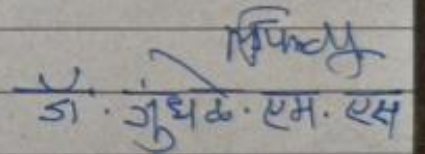 डॉ. गुंधळे. एम. एस